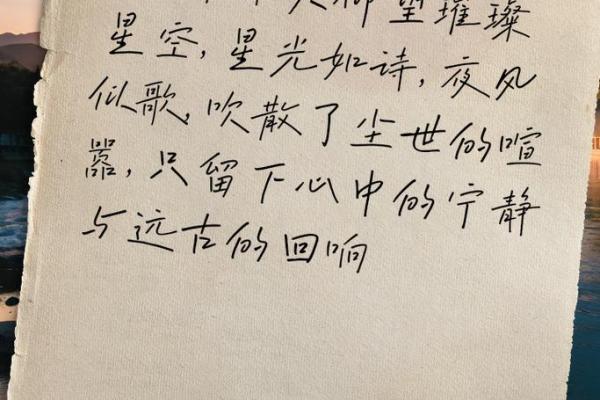 仰望璀璨
星空,星光如诗,夜风
似歌,吹散了尘世的喧
嚣,只留下心中的宁静
与远古的回响